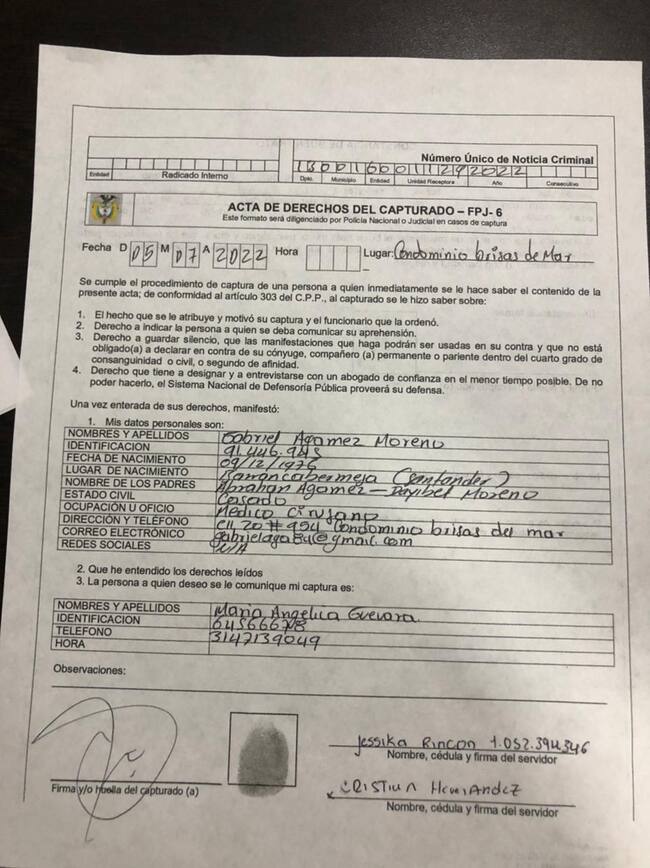 Número Único de Noticia Criminal
Entidad Radicado Interno Dpto. Municipio Entidad Unidad Receptora Año Consecutivo
ACTA DE DERECHOS DEL CAPTURADO – FPJ- 6
Este formato será diligenciado por Policía Nacional o Judicial en casos de captura
Fecha D 05 M 07 A 2022 Hora Lugar: Condominio brisas de Mar
Se cumple el procedimiento de captura de una persona a quien inmediatamente se le hace saber el contenido de la
presente acta; de conformidad al artículo 303 del C.P.P., al capturado se le hizo saber sobre:
1. El hecho que se le atribuye y motivó su captura y el funcionario que la ordenó.
2. Derecho a indicar la persona a quien se deba comunicar su aprehensión.
3. Derecho a guardar silencio, que las manifestaciones que haga podrán ser usadas en su contra y que no está
obligado(a) a declarar en contra de su cónyuge, compañero (a) permanente o pariente dentro del cuarto grado de
consanguinidad o civil, o segundo de afinidad.
4. Derecho que tiene a designar y a entrevistarse con un abogado de confianza en el menor tiempo posible. De no
poder hacerlo, el Sistema Nacional de Defensoría Pública proveerá su defensa.
Una vez enterada de sus derechos, manifestó:
1. Mis datos personales son:
NOMBRES Y APELLIDOS Gabriel Agamez Moreno
IDENTIFICACION
FECHA DE NACIMIENTO 09/12/1976
LUGAR DE NACIMIENTO Barrancabermeja (Santander)
NOMBRE DE LOS PADRES Abrahan Agamez – Moreno
ESTADO CIVIL Casado
OCUPACIÓN U OFICIO Medico Cirujano
DIRECCIÓN Y TELÉFONO Cll 20 # 954 Condominio brisas del mar
CORREO ELECTRÓNICO gabrielaga84@gmail.com
REDES SOCIALES N/A
2. Que he entendido los derechos leídos
3. La persona a quien deseo se le comunique mi captura es:
NOMBRES Y APELLIDOS Maria Angelica Guevara.
IDENTIFICACION
TELEFONO 3147139049
HORA
Observaciones:
Jessika Rincon 1.052.394.346
Nombre, cédula y firma del servidor
Firma y/o huella del capturado (a)
CRISTIAN HernANdEZ
Nombre, cédula y firma del servidor